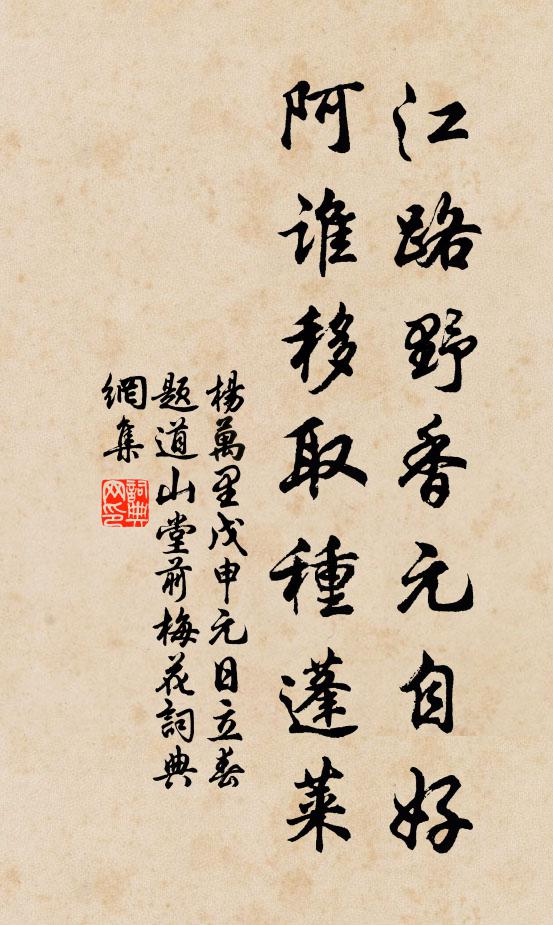 江路野香元自好
阿誰移取種蓬萊
楊萬里戊申元日立春
題道山堂前梅花詞典
網集
詞典
网印